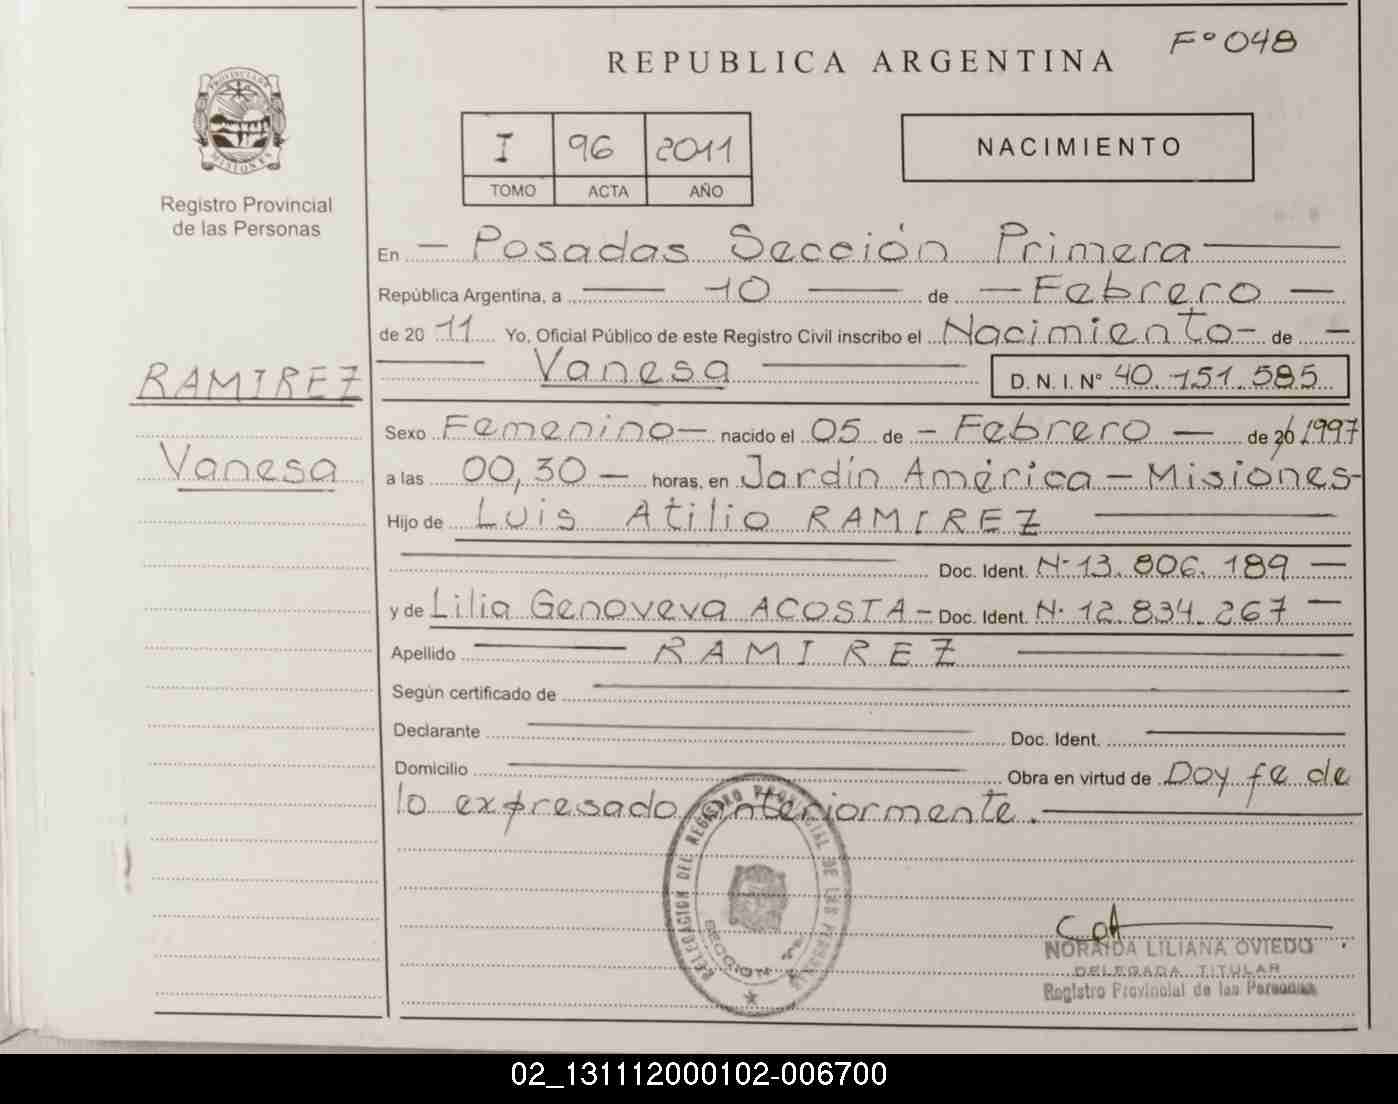 F° 048
REPUBLICA ARGENTINA
PROVINCIA DE
MISIONES
Registro Provincial
de las Personas
I 96 2011
TOMO ACTA AÑO
NACIMIENTO
En - Posadas Sección Primera
República Argentina, a 10 de - Febrero -
de 20 11 Yo, Oficial Público de este Registro Civil inscribo el Nacimiento - de -
Vanesa D. N. I. N° 40.151.585
RAMIREZ
Vanesa
Sexo Femenino - nacido el 05 de - Febrero - de 20 1997
a las 00,30 - horas, en Jardín América - Misiones -
Hijo de Luis Atilio RAMIREZ
Doc. Ident. N· 13.806.189 -
y de Lilia Genoveva ACOSTA - Doc. Ident. N· 12.834.267 -
Apellido RAMIREZ
Según certificado de
Declarante Doc. Ident.
Domicilio Obra en virtud de Doy fe de
lo expresado anteriormente.
DELEGACION DEL REGISTRO PROVINCIAL DE LAS PERSONAS
SECCION 1ª
NORAIDA LILIANA OVIEDO
DELEGADA TITULAR
Registro Provincial de las Personas
02_131112000102-006700